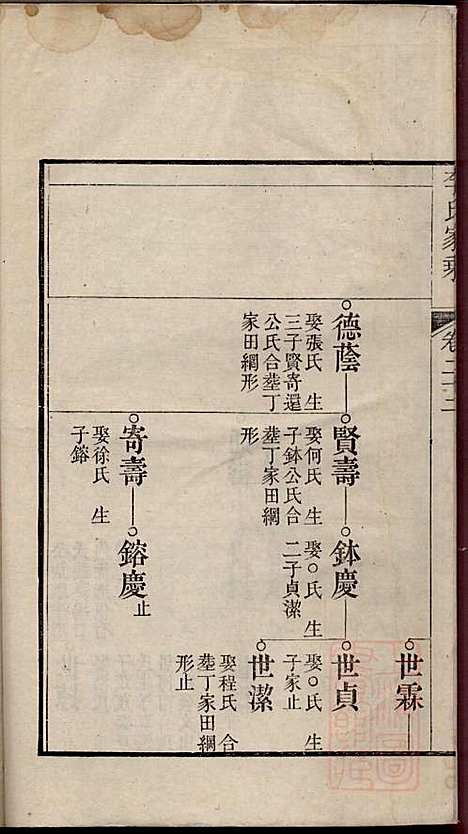 氏家乘
卷二十二
德蔭
娶張氏 生
三子賢寄還
公氏合塟丁
家田綱形
賢壽
娶何氏 生
子鉢公氏合
塟丁家田綱
形
鉢慶
娶○氏 生
二子貞潔
世霖
世貞
娶○氏 生
子家止
世潔
娶程氏 合
塟丁家田綱
形止
寄壽
娶徐氏 生
子鎔
鎔慶
止